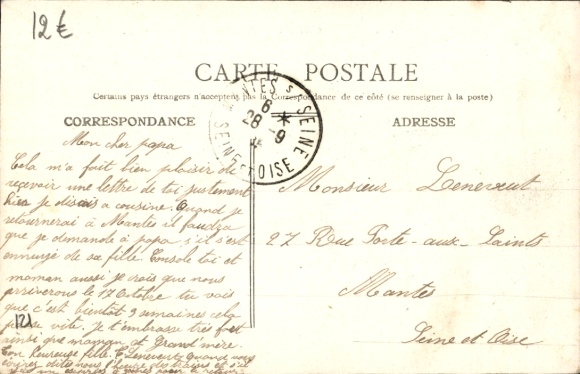 12€
CARTE POSTALE
Certains pays étrangers n'acceptent pas la Correspondance de ce côté (se renseigner à la poste)
CORRESPONDANCE
ADRESSE
MANTES s SEINE
6 *
28 - 9
SEINE ET OISE
Mon cher papa
Cela m'a fait bien plaisir de
recevoir une lettre de toi justement
hier je disais a cousine. Quand je
retournerai à Mantes il faudra
que je demande à papa s'il s'est
ennuyé de sa fille. Console toi et
maman aussi je crois que nous
arriverons le 12 Octobre tu vois
que c'est bientôt 3 semaines cela
passe vite. Je t'embrasse très fort
ainsi que maman et Grand'mère.
Ton heureuse fille. Leneveut Quand vous
dites nous l'heure des trains et s'il
121
Monsieur Leneveut
27 Rue Porte-aux-Saints
Mantes
Seine et Oise